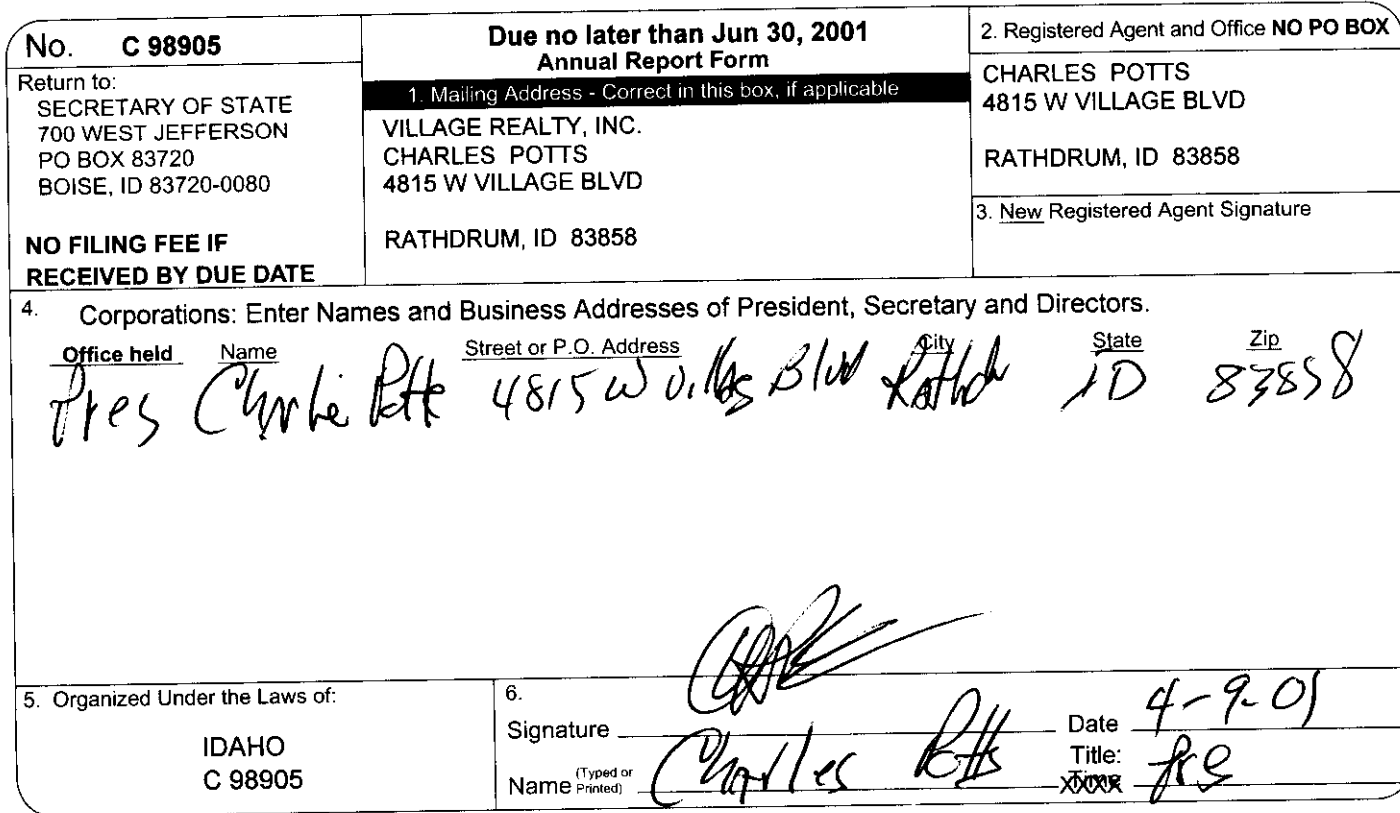 No. C 98905
Return to:
SECRETARY OF STATE
700 WEST JEFFERSON
PO BOX 83720
BOISE, ID 83720-0080
NO FILING FEE IF
RECEIVED BY DUE DATE
Due no later than Jun 30, 2001
Annual Report Form
1. Mailing Address - Correct in this box, if applicable
VILLAGE REALTY, INC.
CHARLES POTTS
4815 W VILLAGE BLVD
RATHDRUM, ID 83858
2. Registered Agent and Office NO PO BOX
CHARLES POTTS
4815 W VILLAGE BLVD
RATHDRUM, ID 83858
3. New Registered Agent Signature
4. Corporations: Enter Names and Business Addresses of President, Secretary and Directors.
Office held Name Street or P.O. Address City State Zip
Pres Charlie Potts 4815 W Blvd ID 83858
5. Organized Under the Laws of:
IDAHO
C 98905
6.
Signature
Date 4-9-01
Name (Typed or Printed) Charles Potts
Title: Pres